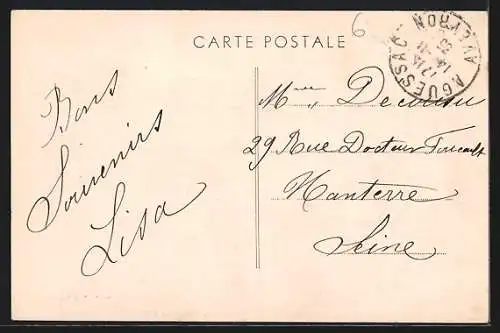 CARTE POSTALE
AGUESSAC
AVEYRON
6
Bons
Souvenirs
Lisa
Mme
29 Rue Docteur Foucault
Nanterre
Seine